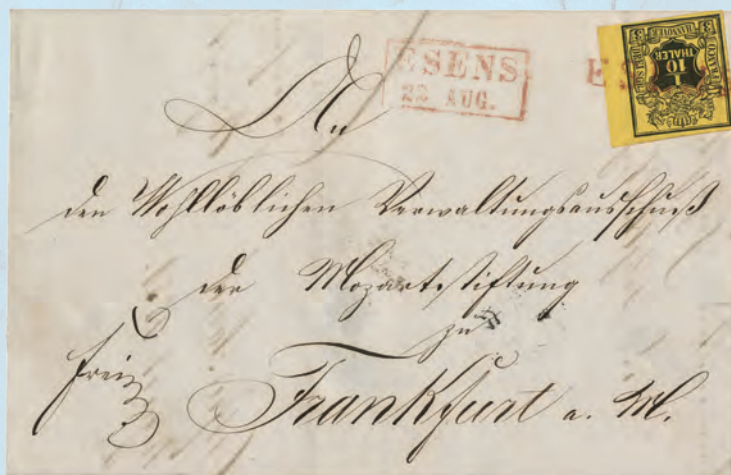 ESENS
22 AUG.
HANNOVER
1
10
THALER
FRANCO
An
den Wohllöblichen Verwaltungsausschuß
der Mozart-Stiftung
zu
frei
Frankfurt a. M.